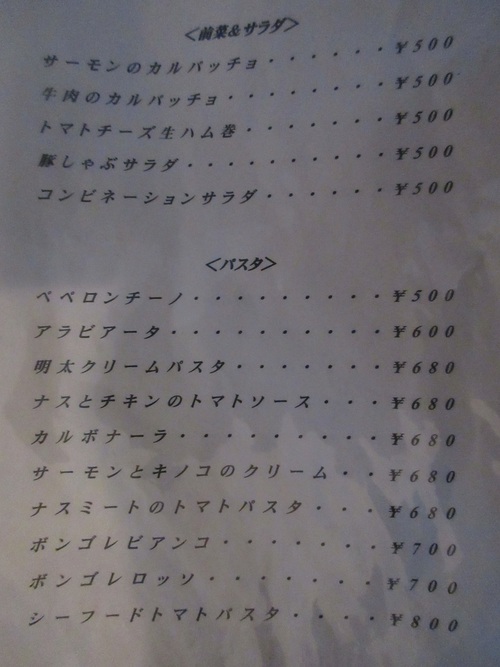 ＜前菜＆サラダ＞
サーモンのカルパッチョ・・・・・・￥500
牛肉のカルパッチョ・・・・・・・・￥500
トマトチーズ生ハム巻・・・・・・・￥500
豚しゃぶサラダ・・・・・・・・・・￥500
コンビネーションサラダ・・・・・・￥500
＜パスタ＞
ペペロンチーノ・・・・・・・・・・￥500
アラビアータ・・・・・・・・・・・￥600
明太クリームパスタ・・・・・・・・￥680
ナスとチキンのトマトソース・・・・￥680
カルボナーラ・・・・・・・・・・・￥680
サーモンとキノコのクリーム・・￥680
ナスミートのトマトパスタ・・・・￥680
ボンゴレビアンコ・・・・・・・・￥700
ボンゴレロッソ・・・・・・・・・￥700
シーフードトマトパスタ・・・・・￥800